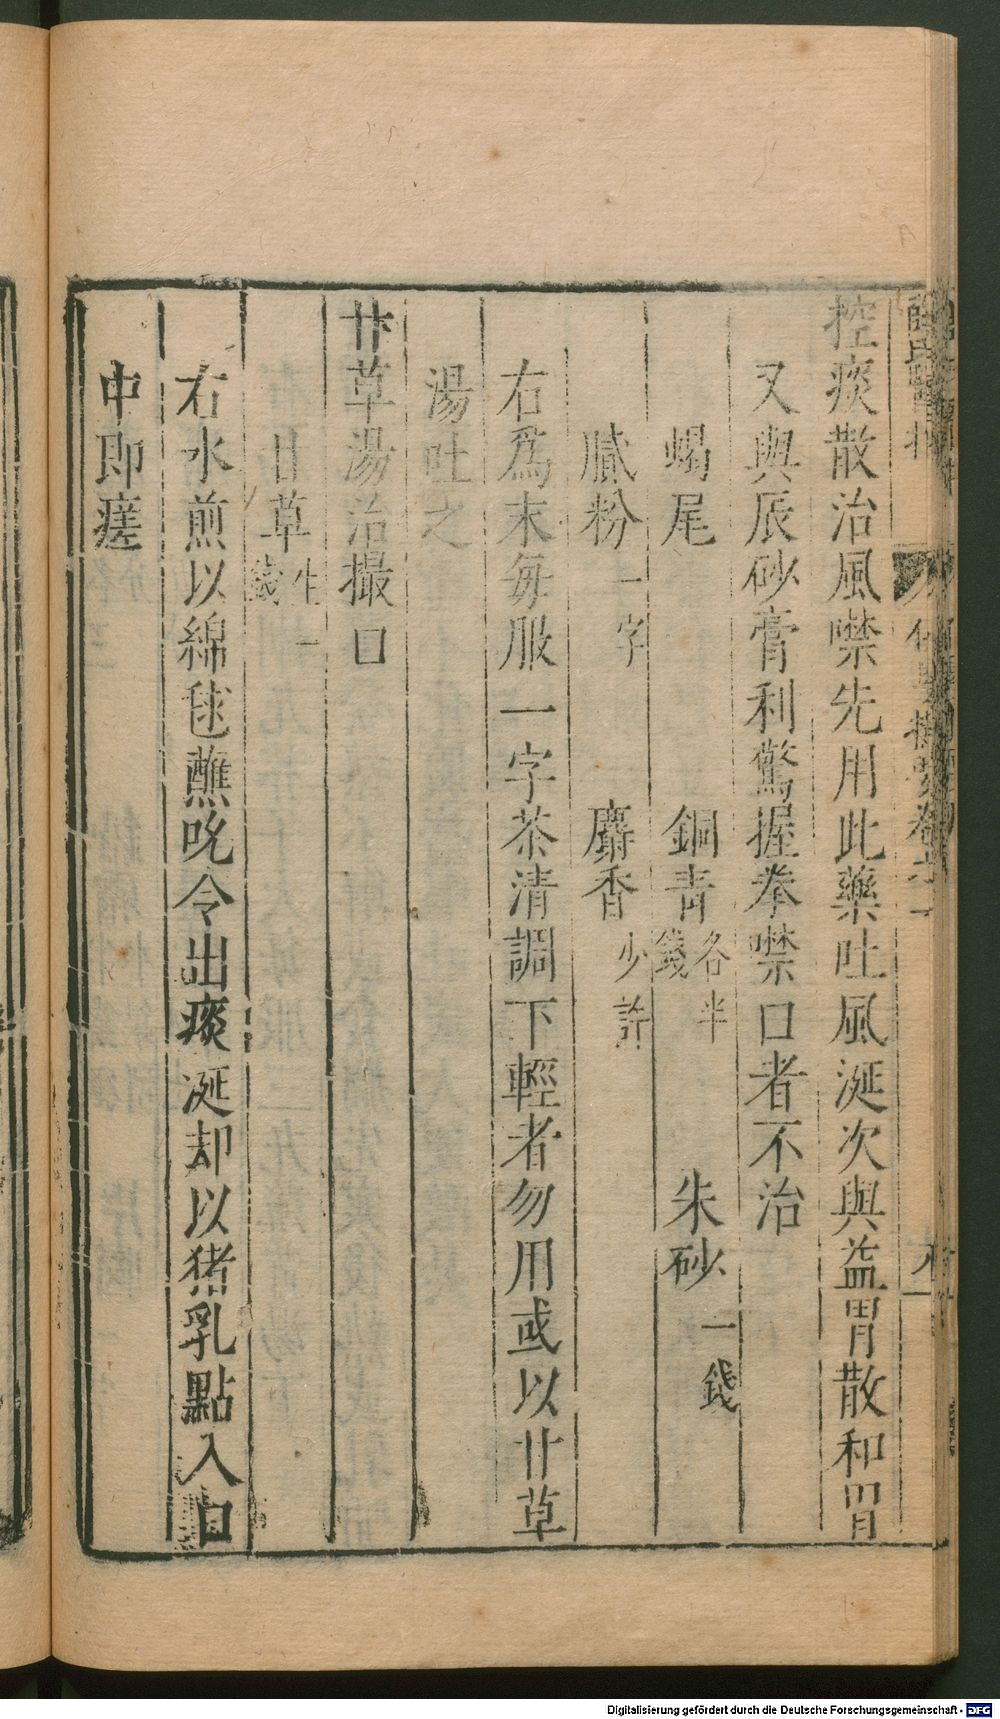 控痰散治風噤先用此藥吐風涎次與益胃散和胃
又與辰砂膏利驚握拳噤口者不治
蝎尾 銅青各半錢 朱砂一錢
膩粉一字 麝香少許
右爲末每服一字茶清調下輕者勿用或以甘草
湯吐之
甘草湯治撮口
甘草生一錢
右水煎以綿毬蘸吮令出痰涎却以猪乳點入口
中即瘥
Digitalisierung gefördert durch die Deutsche Forschungsgemeinschaft - DFG